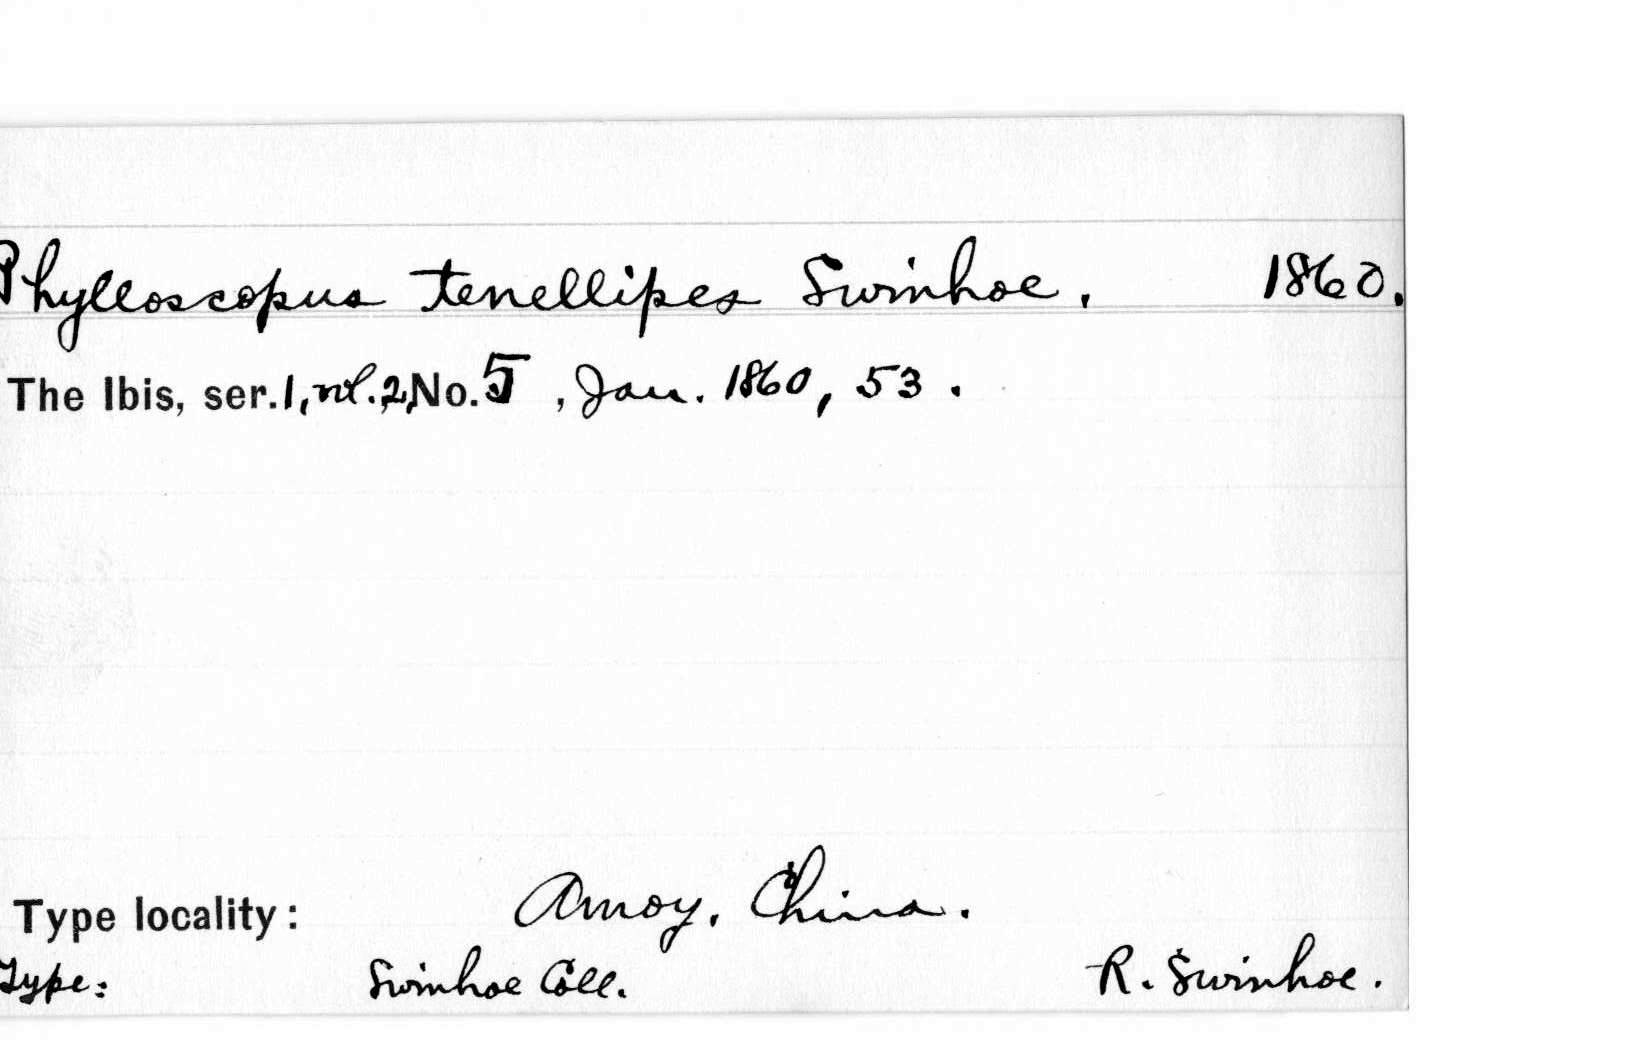 Phylloscopus tenellipes Swinhoe. 1860.
The Ibis, ser.1, vol.2, No.5, Jan. 1860, 53.
Type locality: Amoy, China.
Type: Swinhoe Coll. R. Swinhoe.